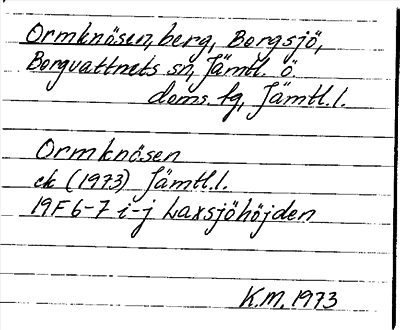 Ormknösen, berg, Borgsjö,
Borgvattnets sn, Jämtl. ö.
doms. tg, Jämtl.l.
Ormknösen
ek (1973) Jämtl.l.
19F 6-7 i-j Laxsjöhöjden
K.M. 1973